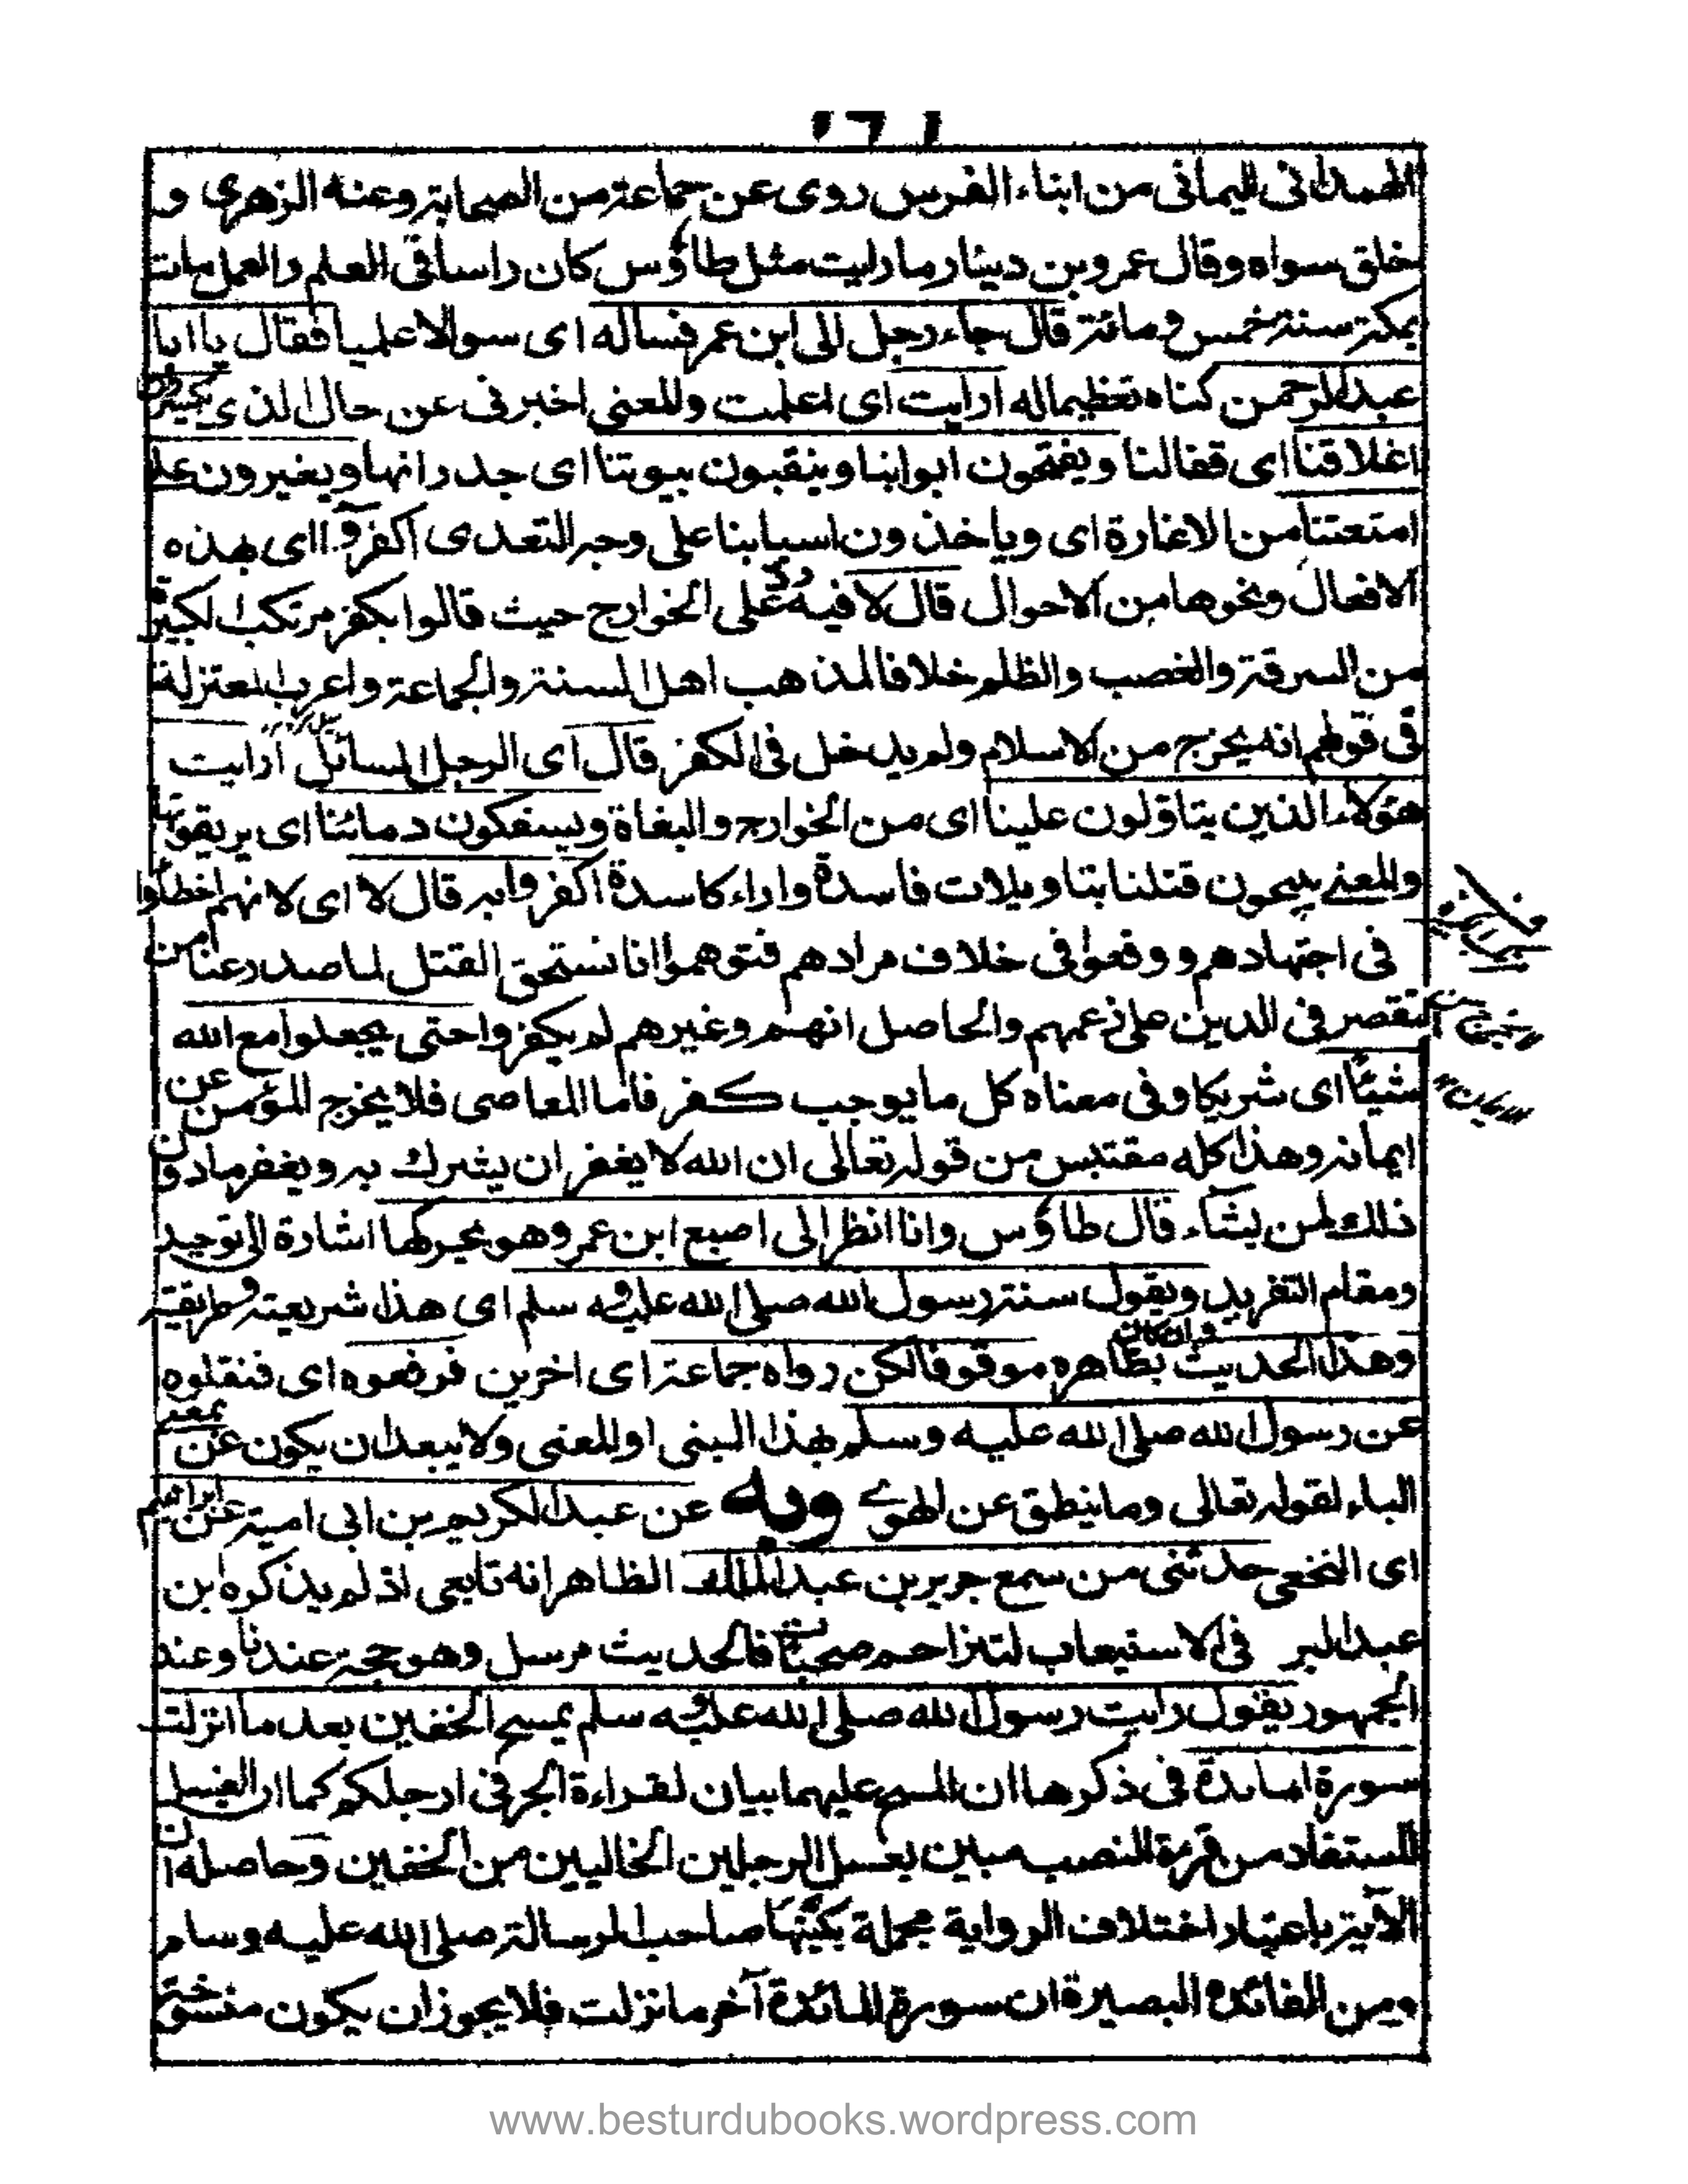 الهمدانى اليمانى من ابناء الفرس روى عن جماعة من الصحابة وعنه الزهرى و
خلق سواه وقال عمرو بن دينار ما رايت مثل طاؤس كان راسا فى العلم والعمل مات
بمكة سنة خمس ومائة قال جاء رجل الى ابن عمر فساله اى سوالا علميا فقال يا ابا
عبد الرحمن كناه تعظيما له ارايت اى اعلمت والمعنى اخبرنى عن حال الذى يكسرون
اغلاقنا اى قفالنا ويفتحون ابوابنا وينقبون بيوتنا اى جدرانها ويغيرون على
امتعتنا من الاغارة اى وياخذون اسبابنا على وجه التعدى اكفروا اى بهذه
الافعال ونحوها من الاحوال قال لا فيه رد على الخوارج حيث قالوا بكفر مرتكب الكبيرة
من السرقة والغصب والظلم خلافا لمذهب اهل السنة والجماعة واعرب المعتزلة
فى قولهم انه يخرج من الاسلام ولم يدخل فى الكفر قال اى الرجل السائل ارايت
هؤلاء الذين يتاؤلون علينا اى من الخوارج والبغاة ويسفكون دمائنا اى يريقونها
والمعنى يبيحون قتلنا بتاويلات فاسدة واراء كاسدة اكفروا به قال لا اى لانهم اخطأوا
فى اجتهادهم ووقعوا فى خلاف مرادهم فتوهموا انا نستحق القتل لما صدر عنا من
التقصر فى الدين على زعمهم والحاصل انهم وغيرهم لم يكفروا حتى يجعلوا مع الله
شيئًا اى شريكا وفى معناه كل ما يوجب كفر فاما المعاصى فلا يخرج المؤمن عن
ايمانه وهذا كله مقتبس من قوله تعالى ان الله لا يغفر ان يشرك به ويغفر ما دون
ذلك لمن يشاء قال طاؤس وانا انظر الى اصبع ابن عمر وهو يحركها اشارة الى توحيد
ومقام التفريد ويقول سنة رسول الله صلى الله عليه وسلم اى هذا شريعته وطريقته
وهذا الحديث وان كان بظاهره موقوفا لكن رواه جماعة اى اخرين فرفعوه اى فنقلوه
عن رسول الله صلى الله عليه وسلم بهذا المبنى او المعنى ولا يبعد ان يكون عن بمعنى
الباء لقوله تعالى وما ينطق عن الهوى وبه عن عبد الكريم بن ابى امية عن ابراهيم
اى النخعى حدثنى من سمع جرير بن عبد الملك الظاهر انه تابعى اذ لم يذكره ابن
عبد البر فى الاستيعاب لتزاحم فالحديث مرسل وهو حجة عندنا وعند
الجمهور يقول رايت رسول الله صلى الله عليه وسلم يمسح الخفين بعد ما انزلت
سورة المائدة فى ذكرها ان المسح عليهما بيان لقراءة الجر فى ارجلكم كما ان الغسل
المستفاد من قرءة النصب مبين بغسل الرجلين الخاليين من الخفين وحاصله ان
الآية باعتبار اختلاف الرواية مجملة صاحب الرسالة صلى الله عليه وسلم
ومن الفائدة البصيرة ان سورة المائدة آخر ما نزلت فلا يجوز ان يكون
www.besturdubooks.wordpress.com